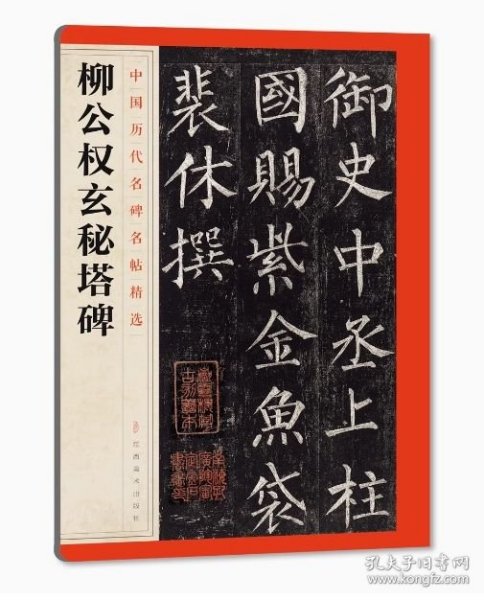 柳公权玄秘塔碑
中国历代名碑名帖精选
江西美术出版社
御史中丞上柱
國賜紫金魚袋
裴休撰
孔夫子旧书网
www.kongfz.com